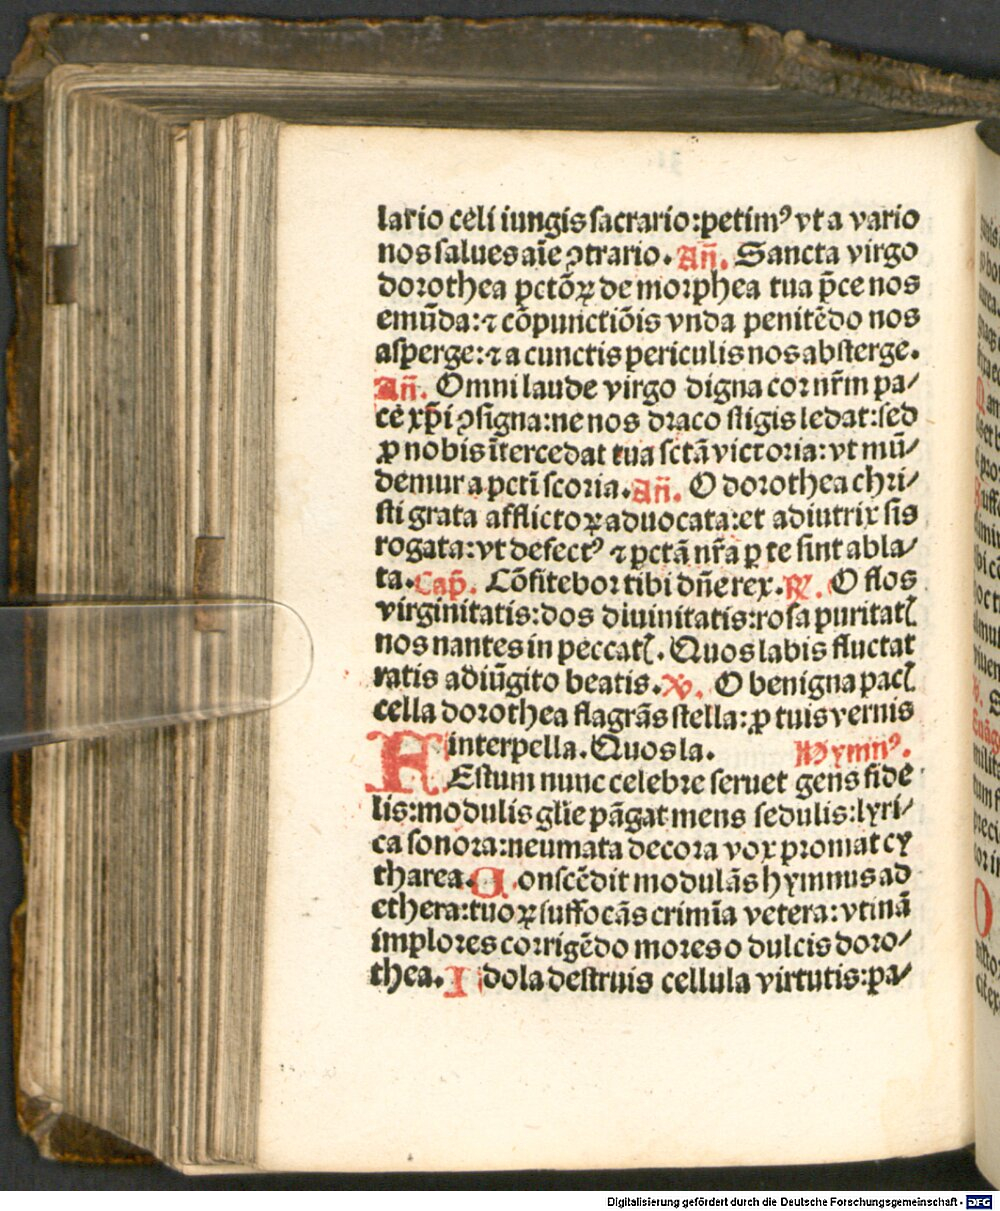 lario celi iungis sacrario: petimꝰ vt a vario
nos salues aīe ꝯtrario. Añ. Sancta virgo
dorothea pctōꝝ de morphea tua p̄ce nos
emūda: ⁊ cōpunctiōis vnda penitēdo nos
asperge: ⁊ a cunctis periculis nos absterge.
Añ. Omni laude virgo digna cor nr̄m pa⸗
ce xp̄i ꝯsigna: ne nos draco stigis ledat: sed
ꝓ nobis ītercedat tua sctā victoria: vt mū⸗
demur a pctī scoria. Añ. O dorothea chri⸗
sti grata afflictoꝝ aduocata: et adiutrix sis
rogata: vt defectꝰ ⁊ pctā nr̄a ꝑ te sint abla⸗
ta. Cap̄. Cōfitebor tibi dn̄e rex. ℟. O flos
virginitatis: dos diuinitatis: rosa puritatꝭ
nos nantes in peccatꝭ. Quos labis fluctat
ratis adiūgito beatis. ℣. O benigna pacꝭ
cella dorothea flagrās stella: ꝓ tuis vernis
interpella. Quos la. Hymnꝰ.
FEstum nunc celebre seruet gens fide
lis: modulis glīe pāgat mens sedulis: lyri⸗
ca sonora: neumata decora vox promat cy
tharea. Conscēdit modulās hymnus ad
ethera: tuoꝝ suffocās crimīa vetera: vtinā
implores corrigēdo mores o dulcis doro⸗
thea. Idola destruis cellula virtutis: pa⸗
Digitalisierung gefördert durch die Deutsche Forschungsgemeinschaft - DFG